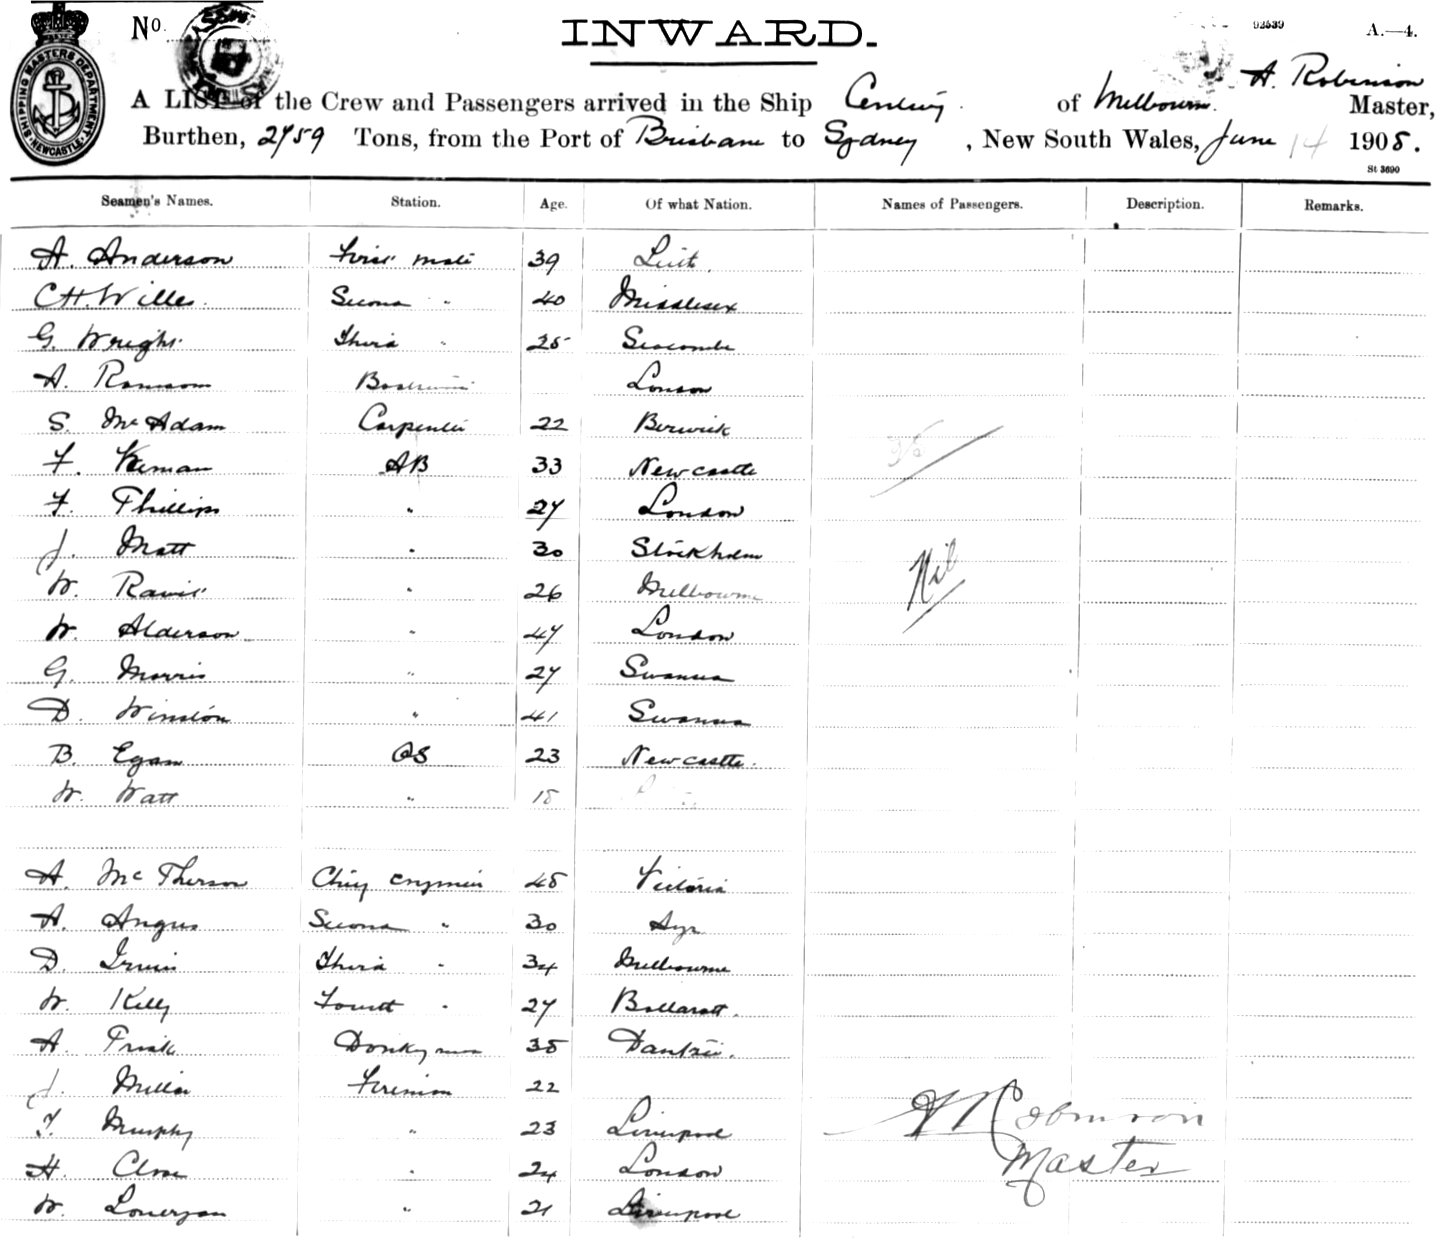 No.
INWARD.
92539
A.—4.
SHIPPING MASTERS DEPARTMENT NEWCASTLE
A. Robinson
A LIST of the Crew and Passengers arrived in the Ship of Melbourne. Master,
Burthen, 2759 Tons, from the Port of Brisbane to Sydney, New South Wales, June 14 1908.
St 3690
Seamen's Names. Station. Age. Of what Nation. Names of Passengers. Description. Remarks.
A. Anderson First mate 39
C H. Willes. Second " 40 Middlesex
G. Wright. Third " Seacombe
A. Ransom London
S. McAdam Carpenter 22 Berwick
F. AB 33 Newcastle
F. Phillips " 27 London
J. Matt " 30 Stockholm
W. " 26 Melbourne
Nil
W. Alderson " 47 London
G. Morris " 27 Swansea
D. Winston " 41 Swansea
B. Egan OS 23 Newcastle.
W. Watt " 18
A. McPherson Chief engineer Victoria
A. Angus Second " 30 Ayr
D. Irwin Third " 34 Melbourne
W. Kelly Fourth " 27 Ballaratt.
A. Donkeyman
J. Millar Fireman 22
A Robinson
T. Murphy " 23 Liverpool
Master
H. Close " 24 London
W. Lonergan " 21 Liverpool